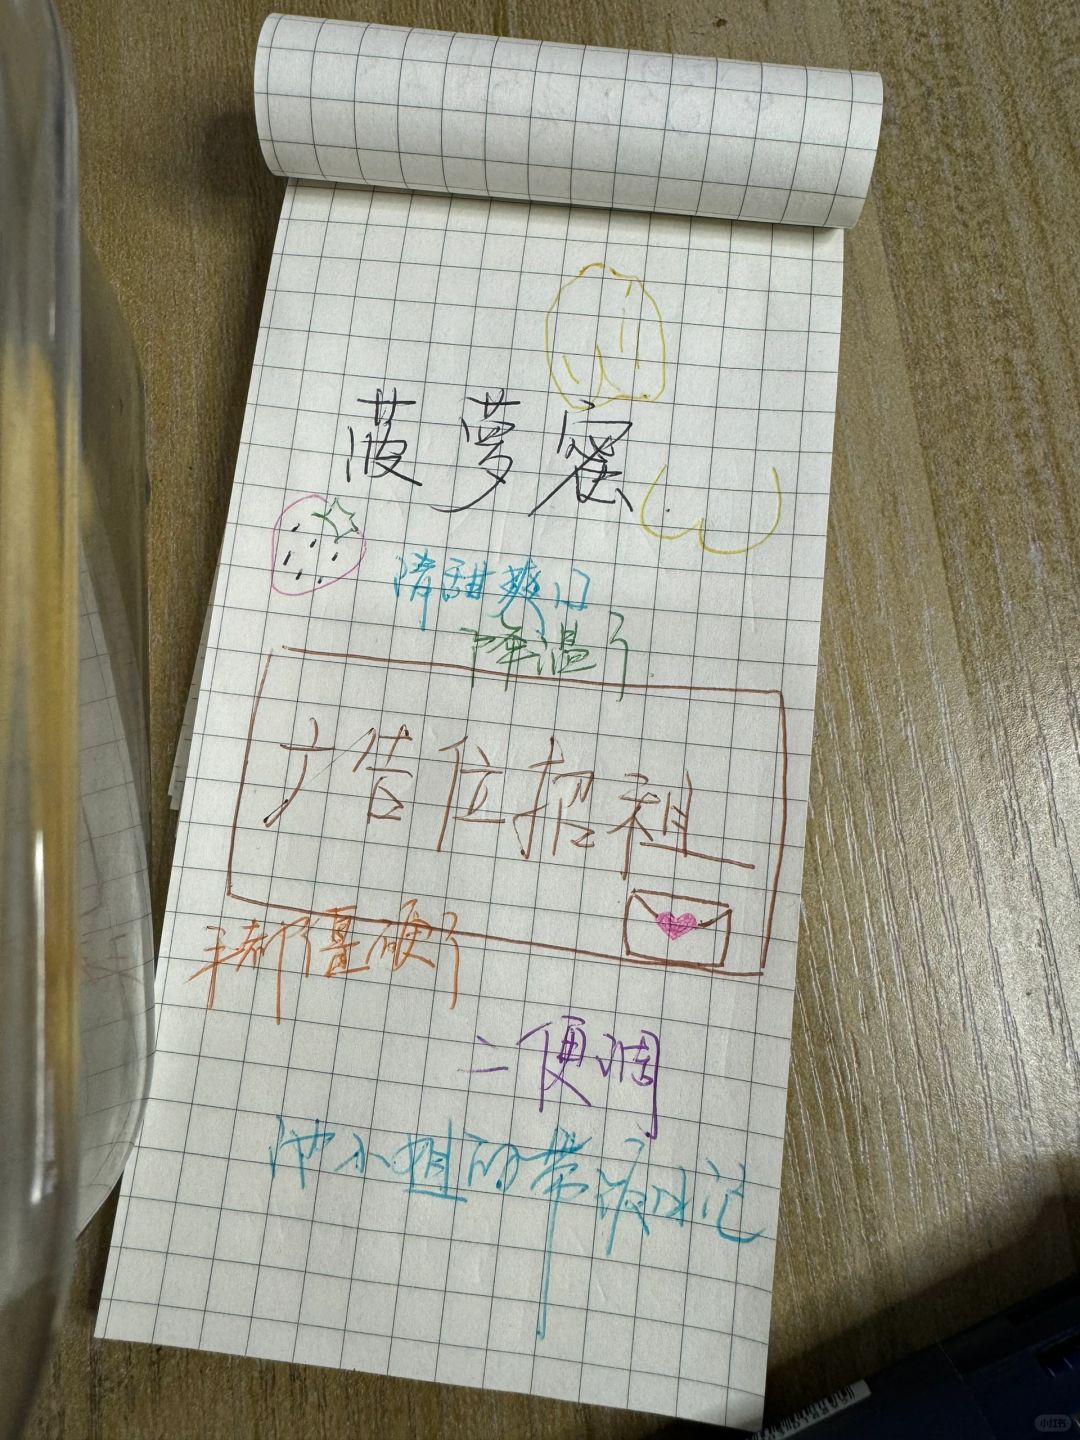 菠萝蜜
清甜爽口
降温了
广告位招租
手都僵硬了
二便调
沈小姐的带液日记
小红书